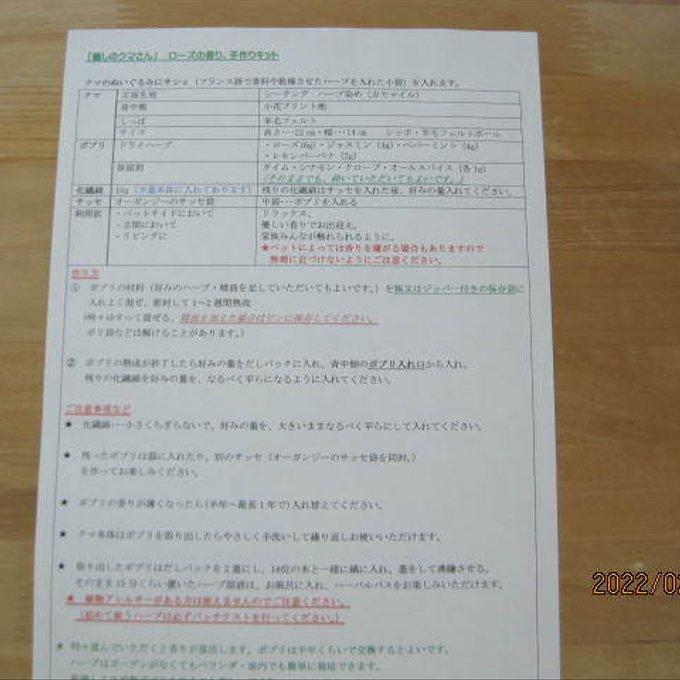 「癒しのクマさん」 ローズの香り、手作りキット
クマのぬいぐるみにサシェ(フランス語で香料や乾燥させたハーブを入れた小袋)を入れます。
クマ 正面生地 シーチング ハーブ染め(カモマイル)
背中側 小花プリント地
しっぽ 羊毛フェルト
サイズ 高さ・・・22cm・幅・・・14cm シッポ・羊毛フェルトボール
ポプリ ドライハーブ ・ローズ(6g)・ジャスミン(4g)・ペパーミント(4g)
・レモンバーベナ(2g)
保留剤 タイム・シナモン・クローブ・オールスパイス(各1g)
(そのままでも、砕いていただいてもよいです。)
化繊綿 10g(予量本体に入れてあります) 残りの化繊綿はサッセを入れた後、好みの量入れてください。
サッセ オーガンジーのサッセ袋 中袋・・・ポプリを入れる
利用法 ・ベットサイドにおいて リラックス。
・玄関において 優しい香りでお出迎え。
・リビングに 家族みんなが触れられるように。
★ペットによっては香りを嫌がる場合もありますので
無理に近づけないようにご注意ください。
作り方
① ポプリの材料(好みのハーブ・精油を足していただいてもよいです。)を瓶又はジッパー付きの保存袋に
入れよく混ぜ、密封して1~2週間熟成
(時々ゆすって混ぜる、精油を加えた場合はビンに保存してください。
ポリ袋などは解けることがあります。)
② ポプリの熟成が終了したら好みの量をだしパックに入れ、背中側のポプリ入れ口から入れ、
残りの化繊綿を好みの量を、なるべく平らになるように入れてください。
ご注意事項など
★ 化繊綿・・・小さくちぎらないで、好みの量を、大きいままなるべく平らにして入れてください。
★ 残ったポプリは器に入れたり、別のサッセ(オーガンジーのサッセ袋を同封。)
を作ってお楽しみください。
★ ポプリの香りが薄くなったら(半年~最長1年で)入れ替えてください。
★ クマ本体はポプリを取り出したらやさしく手洗いして繰り返しお使いいただけます。
★ 取り出したポプリはだしパックを2重にし、14位の水と一緒に鍋に入れ、蓋をして沸騰させる。
そのまま15分くらい置いたハーブ溶液は、お風呂に入れ、ハーバルバスをお楽しみいただけます。
★ 植物アレルギーがある方は使えませんのでご注意ください。
(初めて使うハーブは必ずパッチテストを行ってください。)
★ 時々揉んでいただくと香りが復活します。ポプリは半年くらいで交換するとよいです。
ハーブはガーデンがなくてもベランダ・室内でも簡単に栽培できます。
2022/0